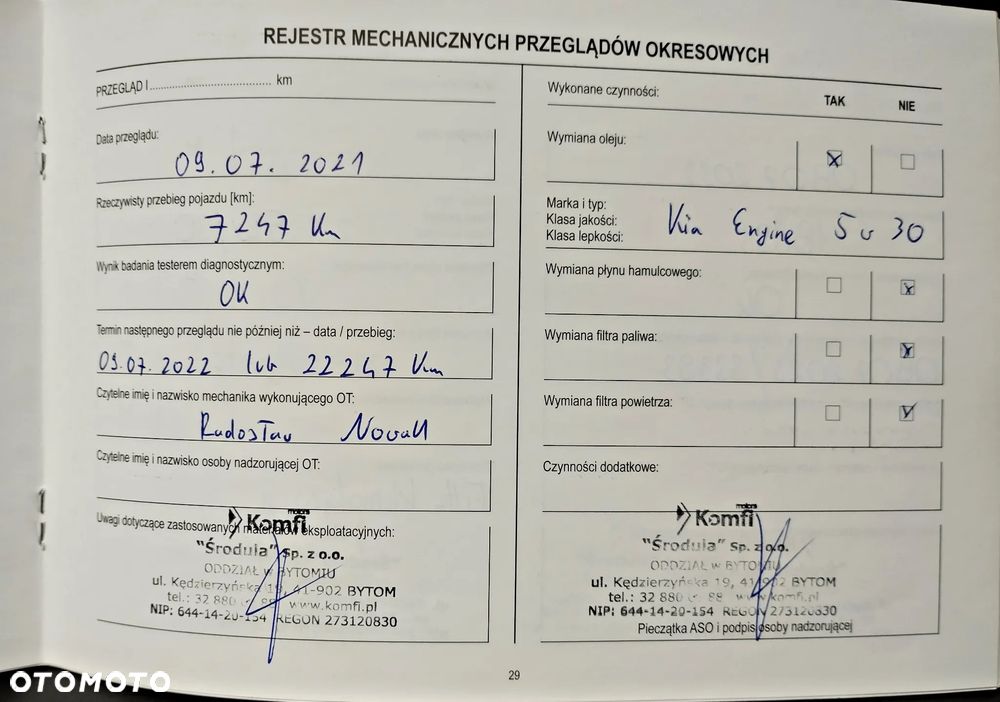 REJESTR MECHANICZNYCH PRZEGLĄDÓW OKRESOWYCH
PRZEGLĄD I ...................................... km
Data przeglądu:
09.07.2021
Rzeczywisty przebieg pojazdu [km]:
7247 Km
Wynik badania testerem diagnostycznym:
OK
Termin następnego przeglądu nie później niż – data / przebieg:
09.07.2022 lub 22247 Km
Czytelne imię i nazwisko mechanika wykonującego OT:
Radosław Nowak
Czytelne imię i nazwisko osoby nadzorującej OT:
Uwagi dotyczące zastosowanych materiałów eksploatacyjnych:
motors
Komfi
"Środula" Sp. z o.o.
ODDZIAŁ w BYTOMIU
ul. Kędzierzyńska 19, 41-902 BYTOM
tel.: 32 880 88 www.komfi.pl
NIP: 644-14-20-154 REGON 273120830
Wykonane czynności:
TAK NIE
Wymiana oleju:
Marka i typ:
Klasa jakości:
Klasa lepkości:
Kia Engine 5w30
Wymiana płynu hamulcowego:
Wymiana filtra paliwa:
Wymiana filtra powietrza:
Czynności dodatkowe:
motors
Komfi
"Środula" Sp. z o.o.
ODDZIAŁ w BYTOMIU
ul. Kędzierzyńska 19, 41-902 BYTOM
tel.: 32 880 88 www.komfi.pl
NIP: 644-14-20-154 REGON 273120830
Pieczątka ASO i podpis osoby nadzorującej
29
OTOMOTO